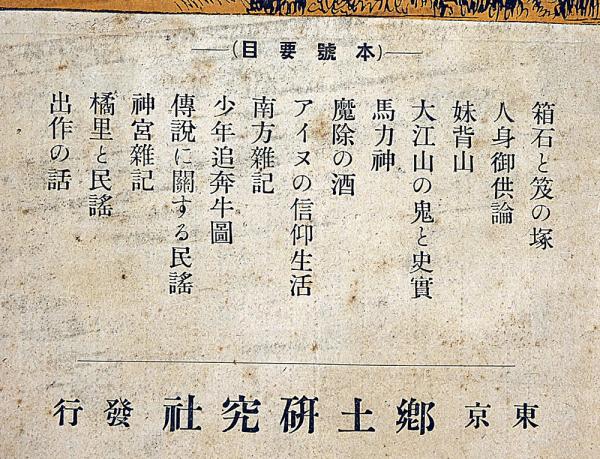 (本號要目)
箱石と笈の塚
人身御供論
妹背山
大江山の鬼と史實
馬力神
魔除の酒
アイヌの信仰生活
南方雜記
少年追奔牛圖
傳說に關する民謠
神宮雜記
橘里と民謠
出作の話
東京 鄉土硏究社 發行